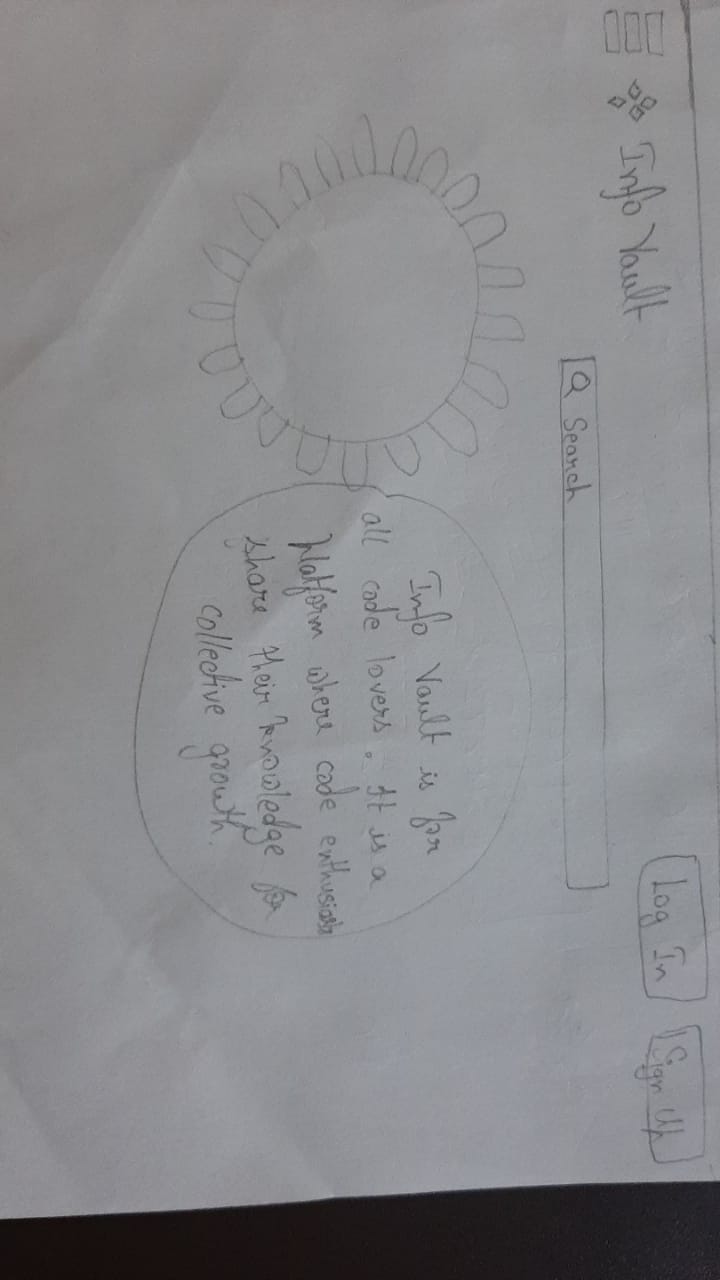 Info Vault
Log In
Sign Up
Search
Info Vault is for
all code lovers. It is a
Platform where code enthusiasts
share their knowledge for
collective growth.